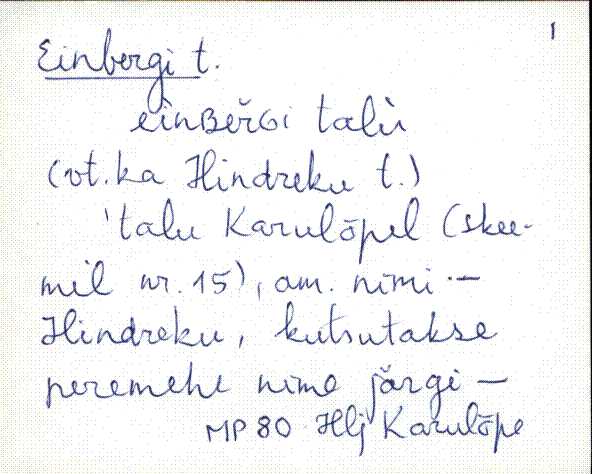 1
Einbergi t.
eìnʙeřɢi talù
(vt. ka Hindreku t.)
'talu Karulõpel (skee-
mil nr. 15), am. nimi –
Hindreku, kutsutakse
peremehe nime järgi –
MP 80 Hlj Karulõpe